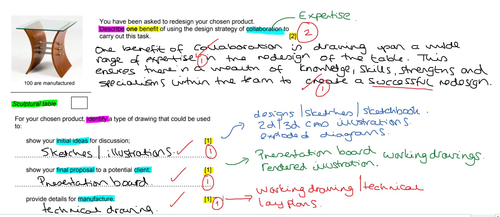 You have been asked to redesign your chosen product.
Describe one benefit of using the design strategy of collaboration to
carry out this task.
[2]
2
Expertise.
One benefit of collaboration is drawing upon a wide
range of expertise in the redesign of the table. This
ensures there is a wealth of knowledge, skills, strengths and
specialisms within the team to create a successful redesign.
1
1
100 are manufactured
Sculptural table
For your chosen product, identify a type of drawing that could be used
to:
show your initial ideas for discussion;
[1]
Sketches / illustrations.
1
designs / sketches / sketchbook
2d / 3d CAD illustrations
exploded diagrams.
show your final proposal to a potential client;
[1]
Presentation board
1
Presentation board working drawings.
rendered illustration.
provide details for manufacture.
[1]
technical drawing.
1
working drawing / technical
lay plans.